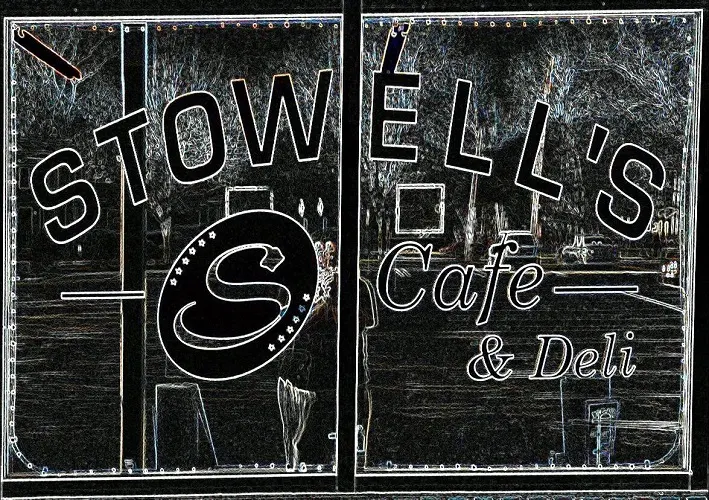 STOWELL'S
S Cafe
& Deli